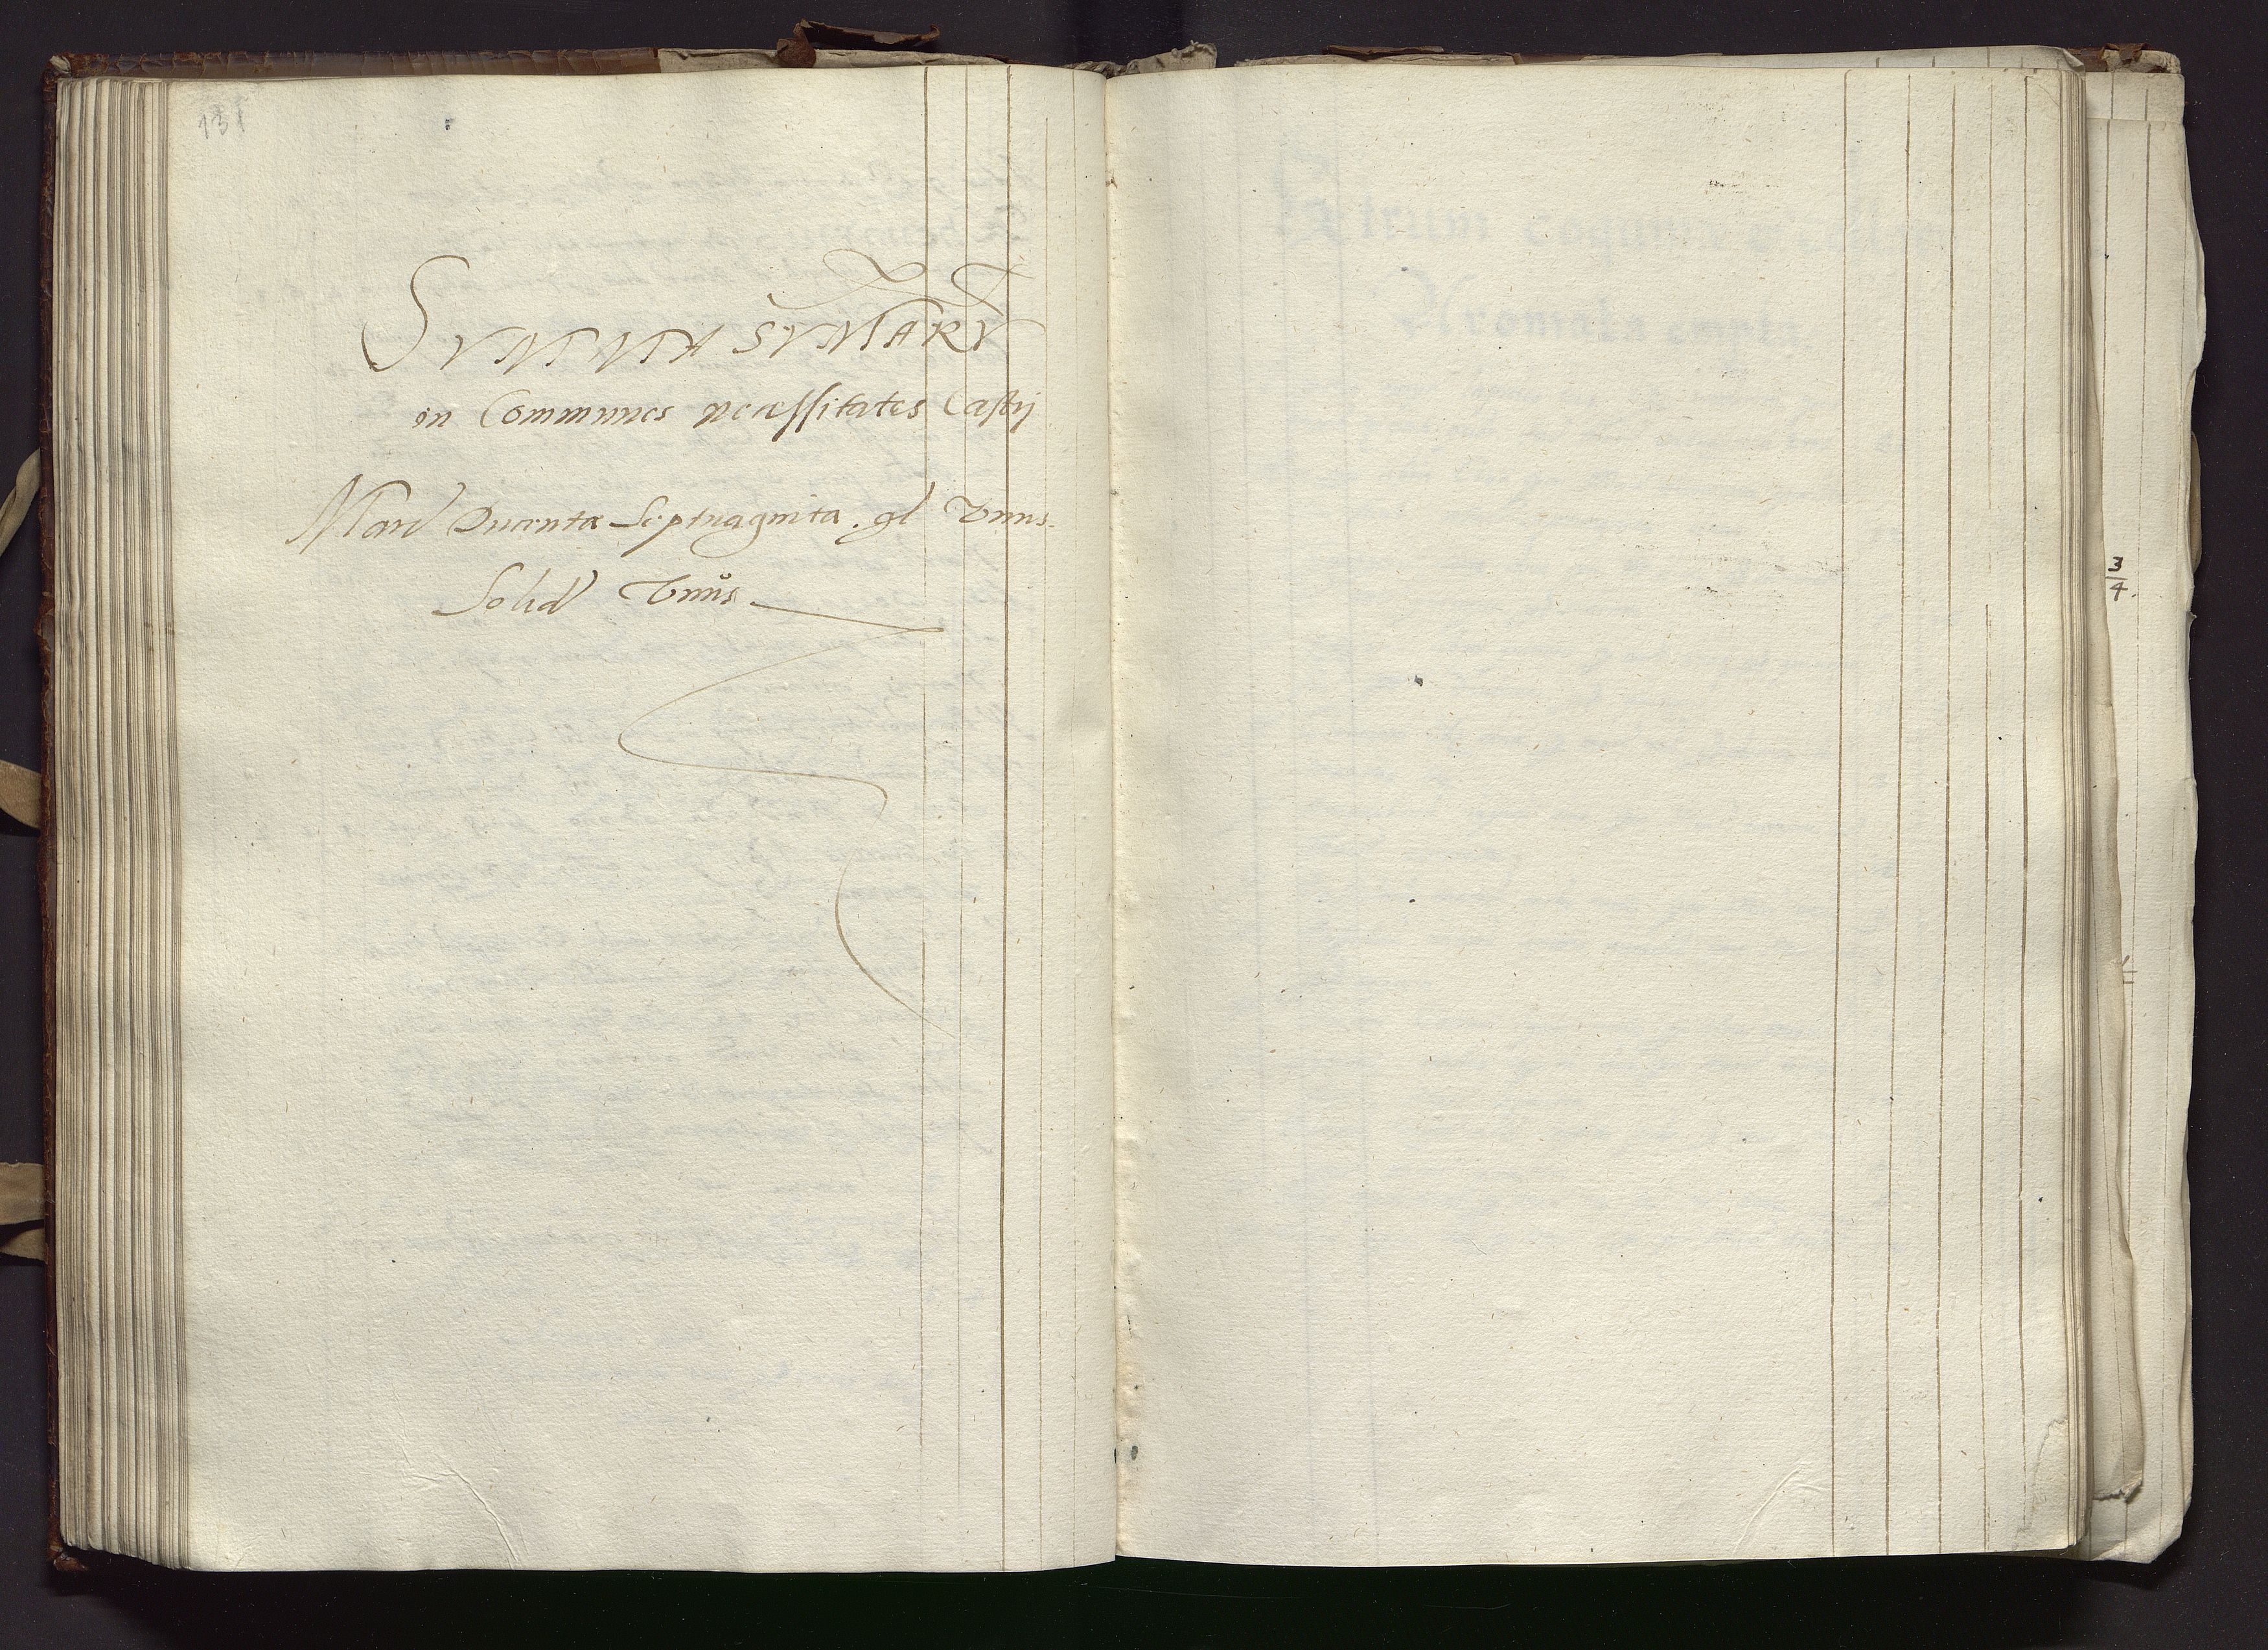 131
SVMMA SVMARV
in Communes necessitates Castrj
Marc Ducentæ Septuaginta . gl Vnus
Solid Vnus
3/4.